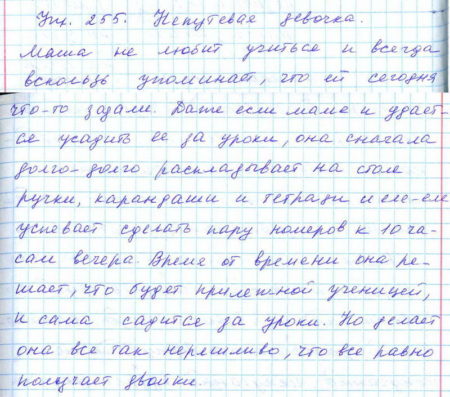 Упр. 255. Непутевая девочка.
Маша не любит учиться и всегда
вскользь упоминает, что ей сегодня
что-то задали. Даже если маме и удает-
ся усадить ее за уроки, она сначала
долго-долго раскладывает на столе
ручки, карандаши и тетради и еле-еле
успевает сделать пару номеров к 10 ча-
сам вечера. Время от времени она ре-
шает, что будет прилежной ученицей,
и сама садится за уроки. Но делает
она все так неряшливо, что все равно
получает двойки.